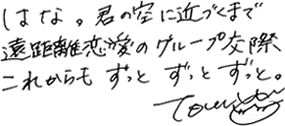 はな。君の空に近づくまで
遠距離恋愛のグループ交際
これからも ずっと ずっと ずっと。